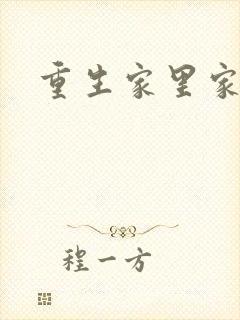 重生家里家
程一方